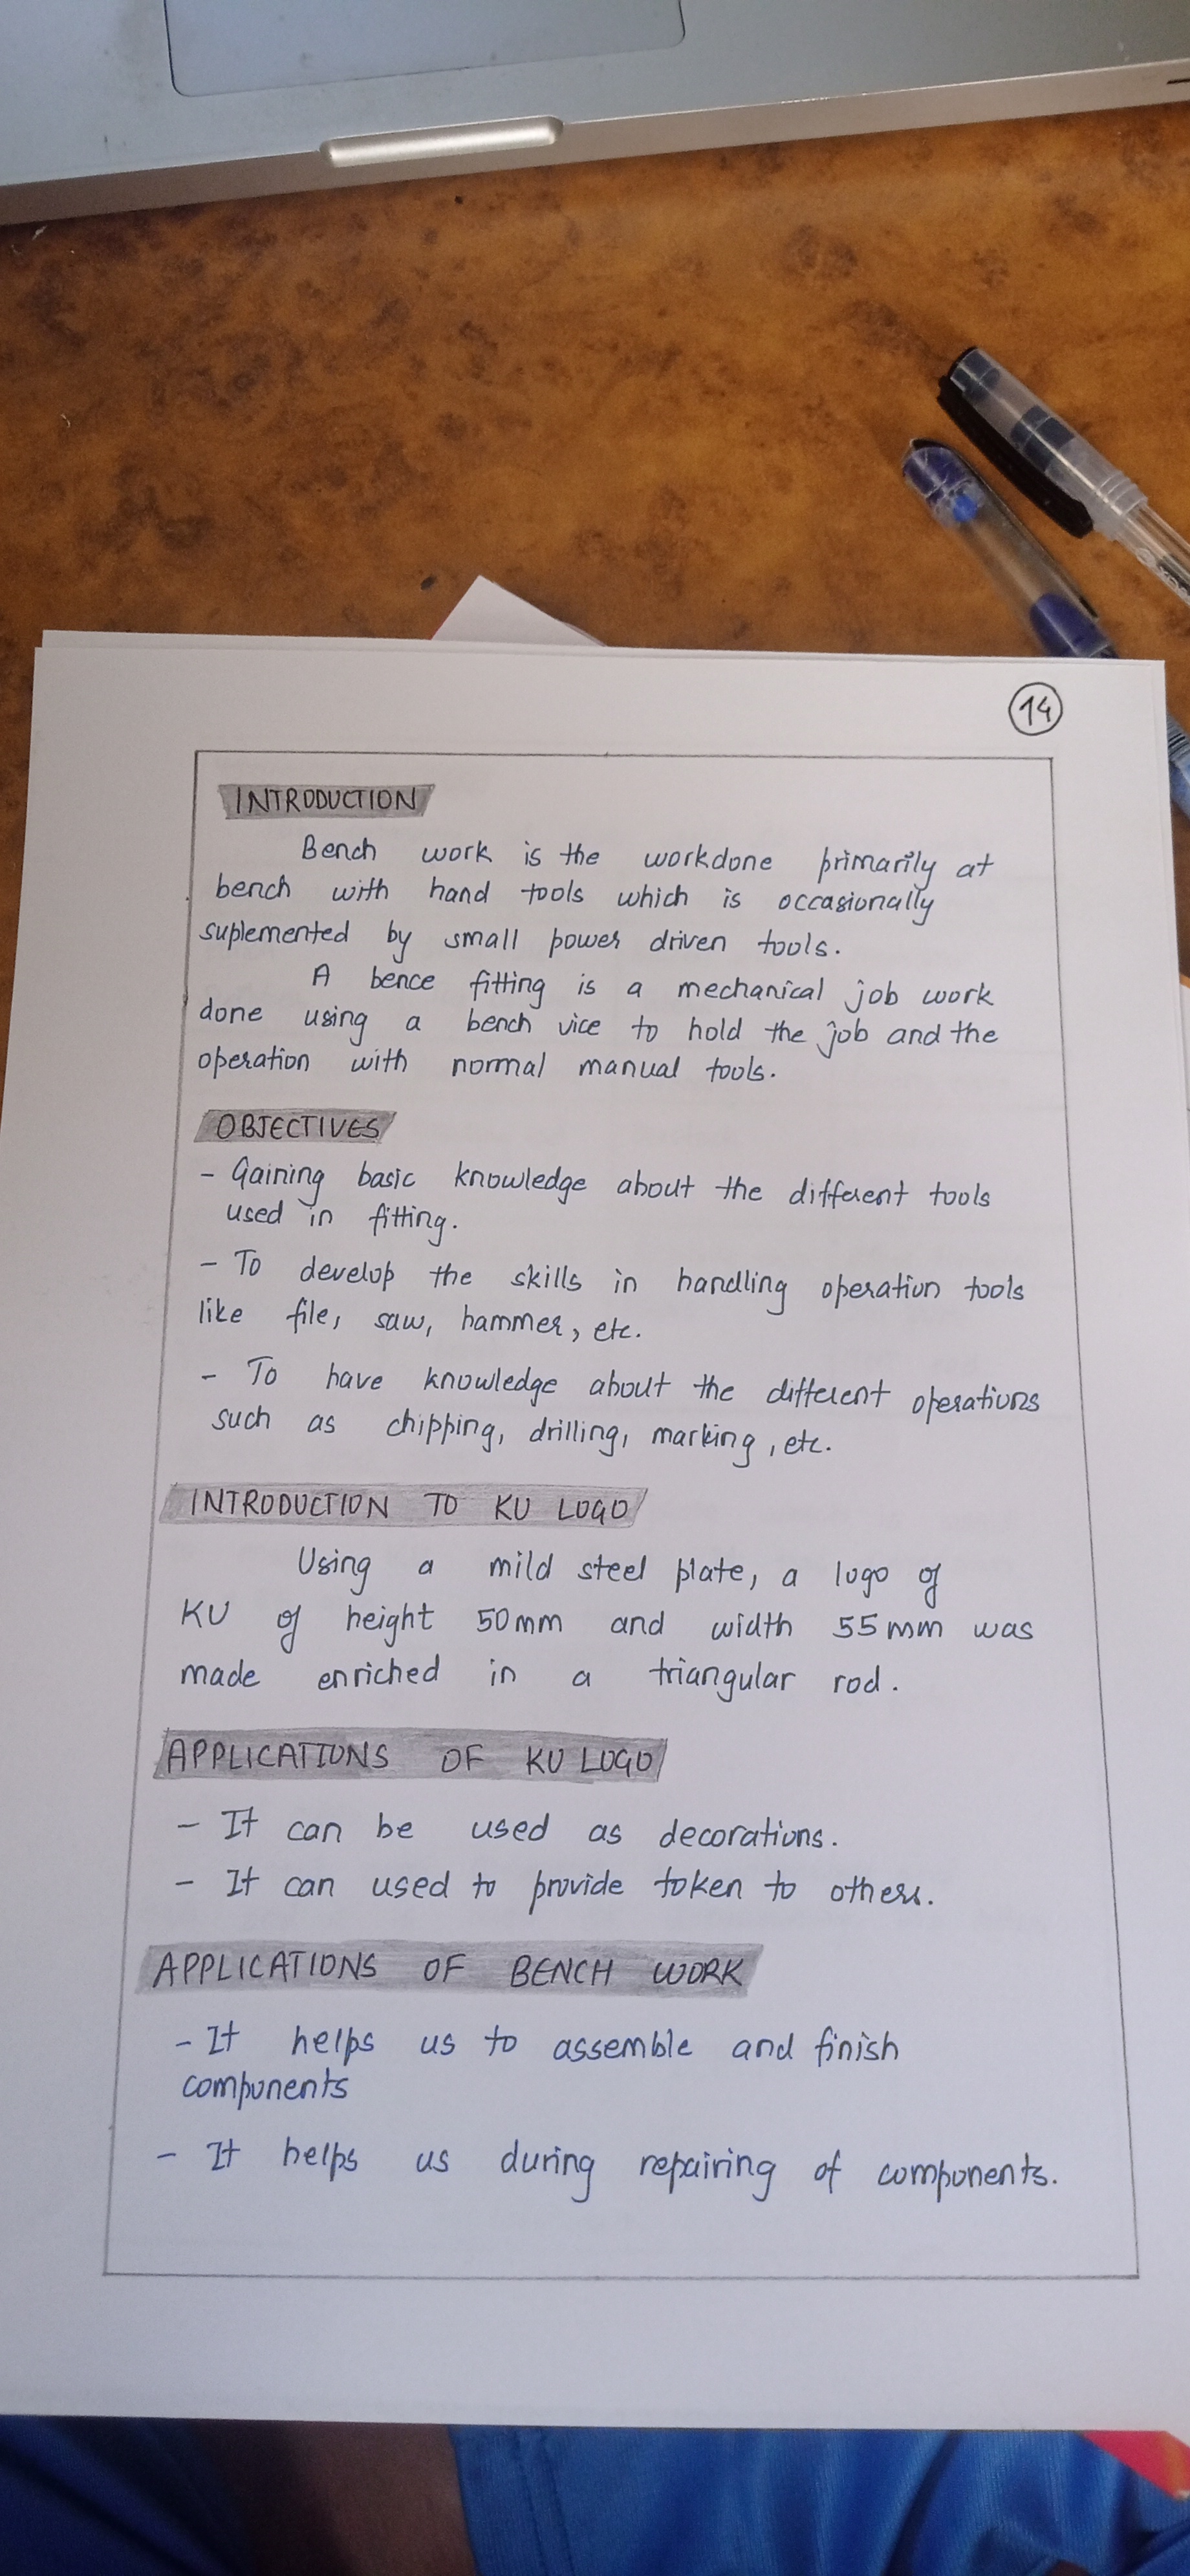 14
INTRODUCTION
Bench work is the workdone primarily at
bench with hand tools which is occasionally
suplemented by small power driven tools.
A bence fitting is a mechanical job work
done using a bench vice to hold the job and the
operation with normal manual tools.
OBJECTIVES
- Gaining basic knowledge about the different tools
used in fitting.
- To develop the skills in handling operation tools
like file, saw, hammer, etc.
- To have knowledge about the different operations
such as chipping, drilling, marking, etc.
INTRODUCTION TO KU LOGO
Using a mild steel plate, a logo of
KU of height 50mm and width 55mm was
made enriched in a triangular rod.
APPLICATIONS OF KU LOGO
- It can be used as decorations.
- It can used to provide token to others.
APPLICATIONS OF BENCH WORK
- It helps us to assemble and finish
components
- It helps us during repairing of components.